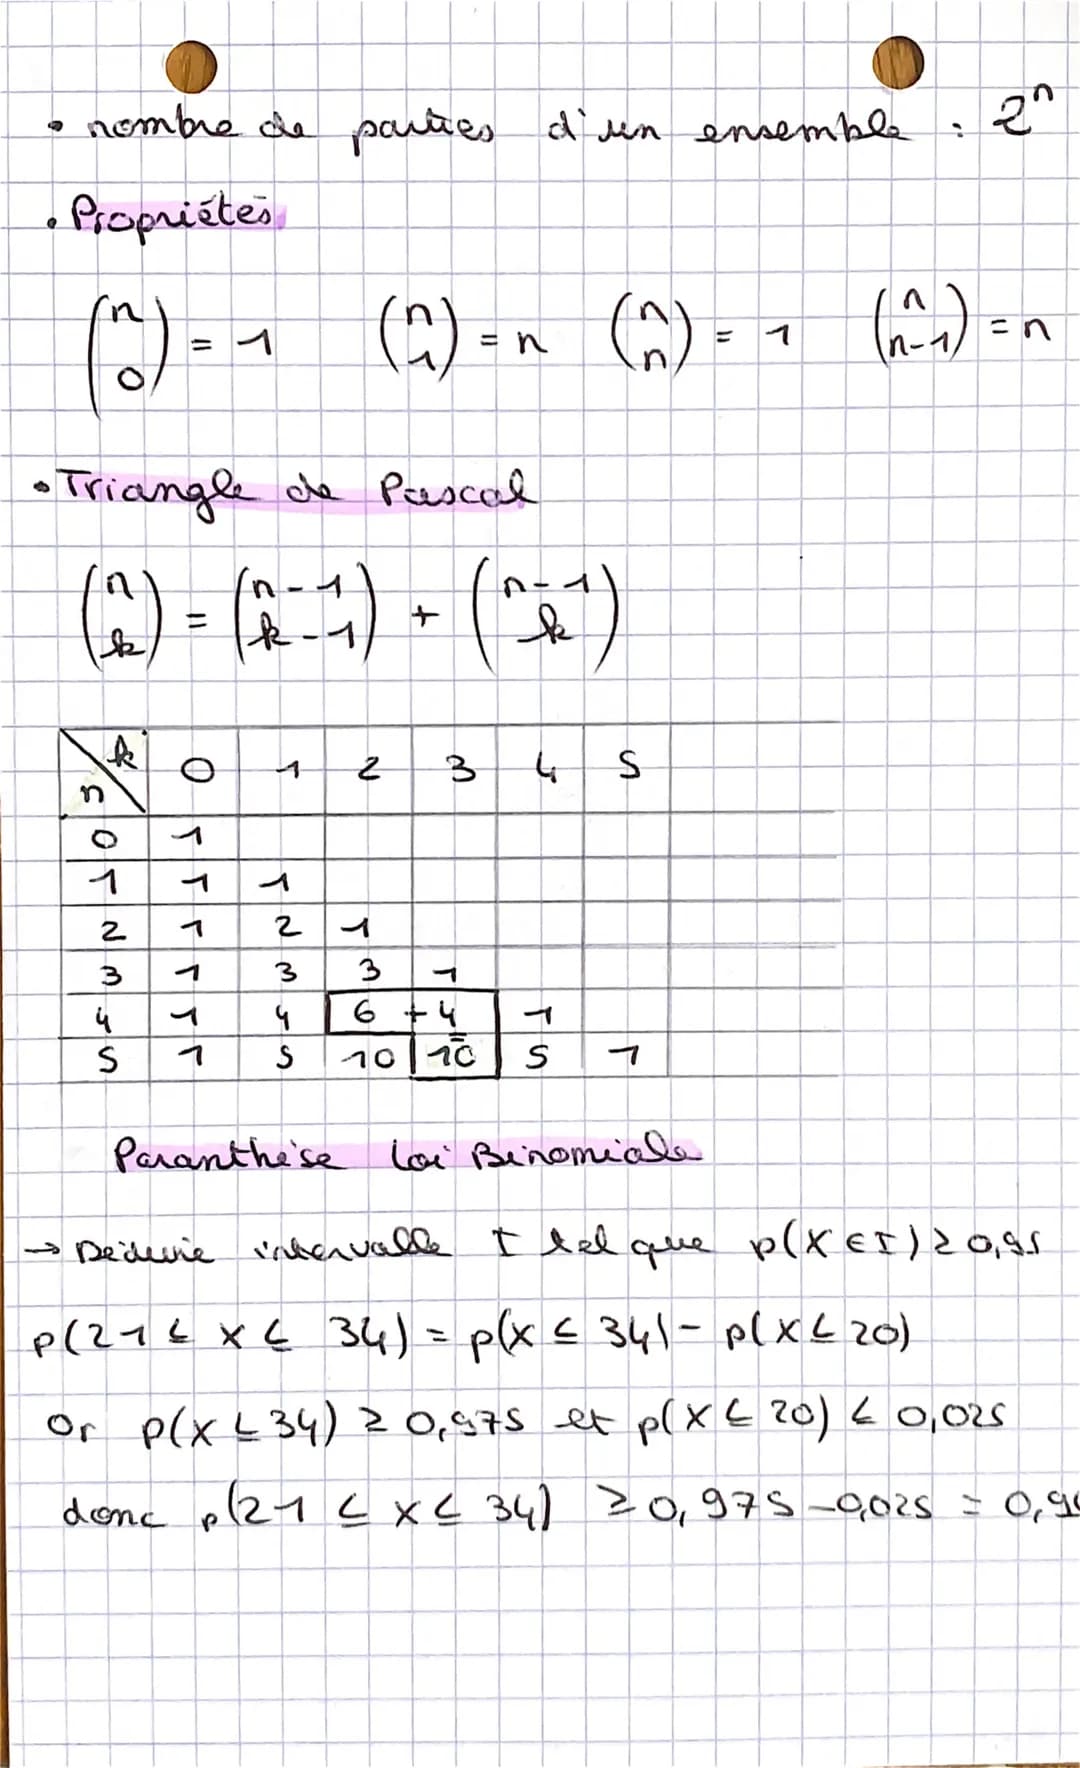 • nombre de parties d'un ensemble : 2ⁿ
• Propriétes
(n 0) = 1 (n 1) = n (n n) = 1 (n n-1) = n
• Triangle de Pascal
(n k) = (n-1 k-1) + (n-1 k)
n\k 0 1 2 3 4 5
0 1
1 1 1
2 1 2 1
3 1 3 3 1
4 1 4 6 + 4 1
5 1 5 10 = 10 5 1
Paranthèse Loi Binomiale
→ Déduire intervalle I tel que p(X ∈ I) ≥ 0,95
p(21 ≤ X ≤ 34) = p(X ≤ 34) - p(X ≤ 20)
Or p(X ≤ 34) ≥ 0,975 et p(X ≤ 20) ≤ 0,025
donc p(21 ≤ X ≤ 34) ≥ 0,975 - 0,025 = 0,9